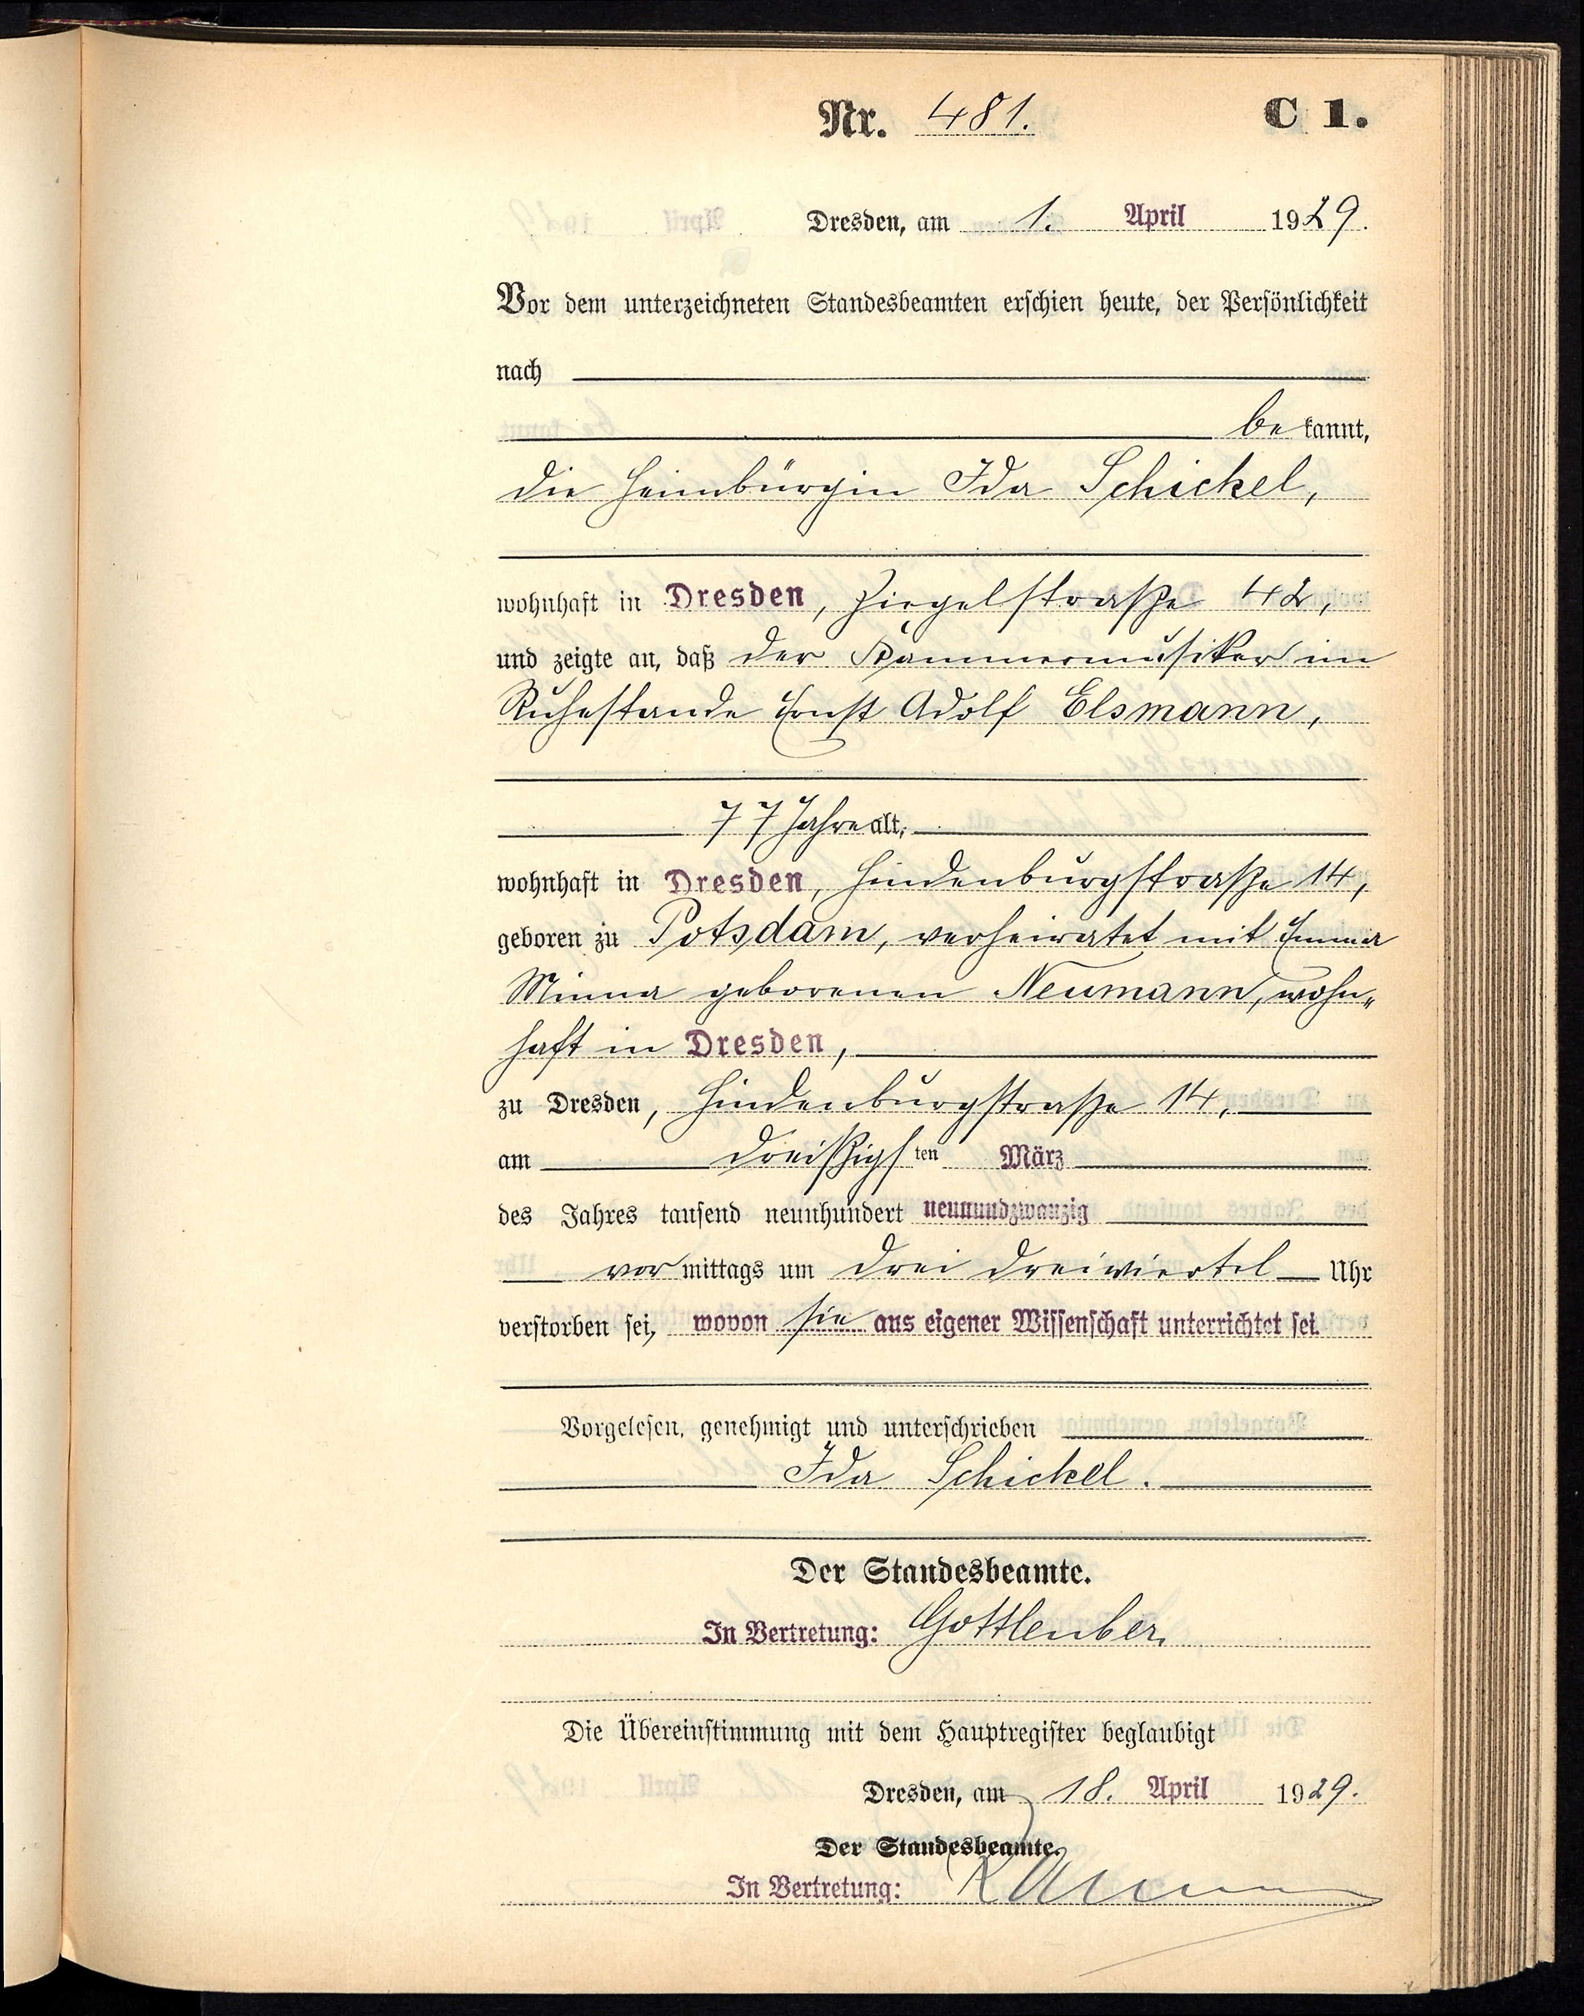 Nr. 481. C 1.
Dresden, am 1. April 1929.
Vor dem unterzeichneten Standesbeamten erschien heute, der Persönlichkeit
nach
be kannt,
die Heimbürgin Ida Schickel,
wohnhaft in Dresden, Ziegelstraße 42,
und zeigte an, daß der Kammermusiker im
Ruhestande Ernst Adolf Elsmann,
77 Jahre alt,
wohnhaft in Dresden, Hindenburgstraße 14,
geboren zu Potsdam, verheiratet mit Emma
Minna geborenen Neumann, wohn-
haft in Dresden,
zu Dresden, Hindenburgstraße 14,
am dreißigsten März
des Jahres tausend neunhundert neunundzwanzig
vormittags um drei dreiviertel Uhr
verstorben sei, wovon sie aus eigener Wissenschaft unterrichtet sei.
Vorgelesen, genehmigt und unterschrieben
Ida Schickel.
Der Standesbeamte.
In Vertretung: Gottlenber
Die Übereinstimmung mit dem Hauptregister beglaubigt
Dresden, am 18. April 1929.
Der Standesbeamte.
In Vertretung: